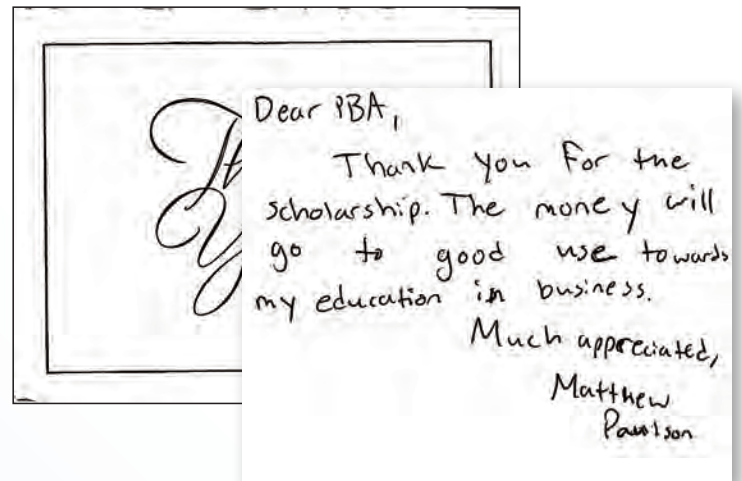 Dear PBA,
Thank you For the
scholarship. The money will
go to good use towards
my education in business.
Much appreciated,
Matthew